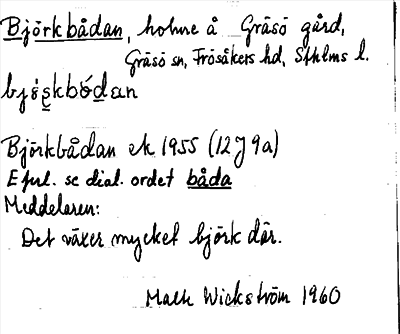 Björkbådan, holme å Gräsö gård,
Gräsö sn, Frösåkers hd, Sthlms l.
Björkbådan ek 1955 (12J 9a)
E ful. se dial. ordet båda
Meddelaren:
Det växer mycket björk där.
Wickström 1960